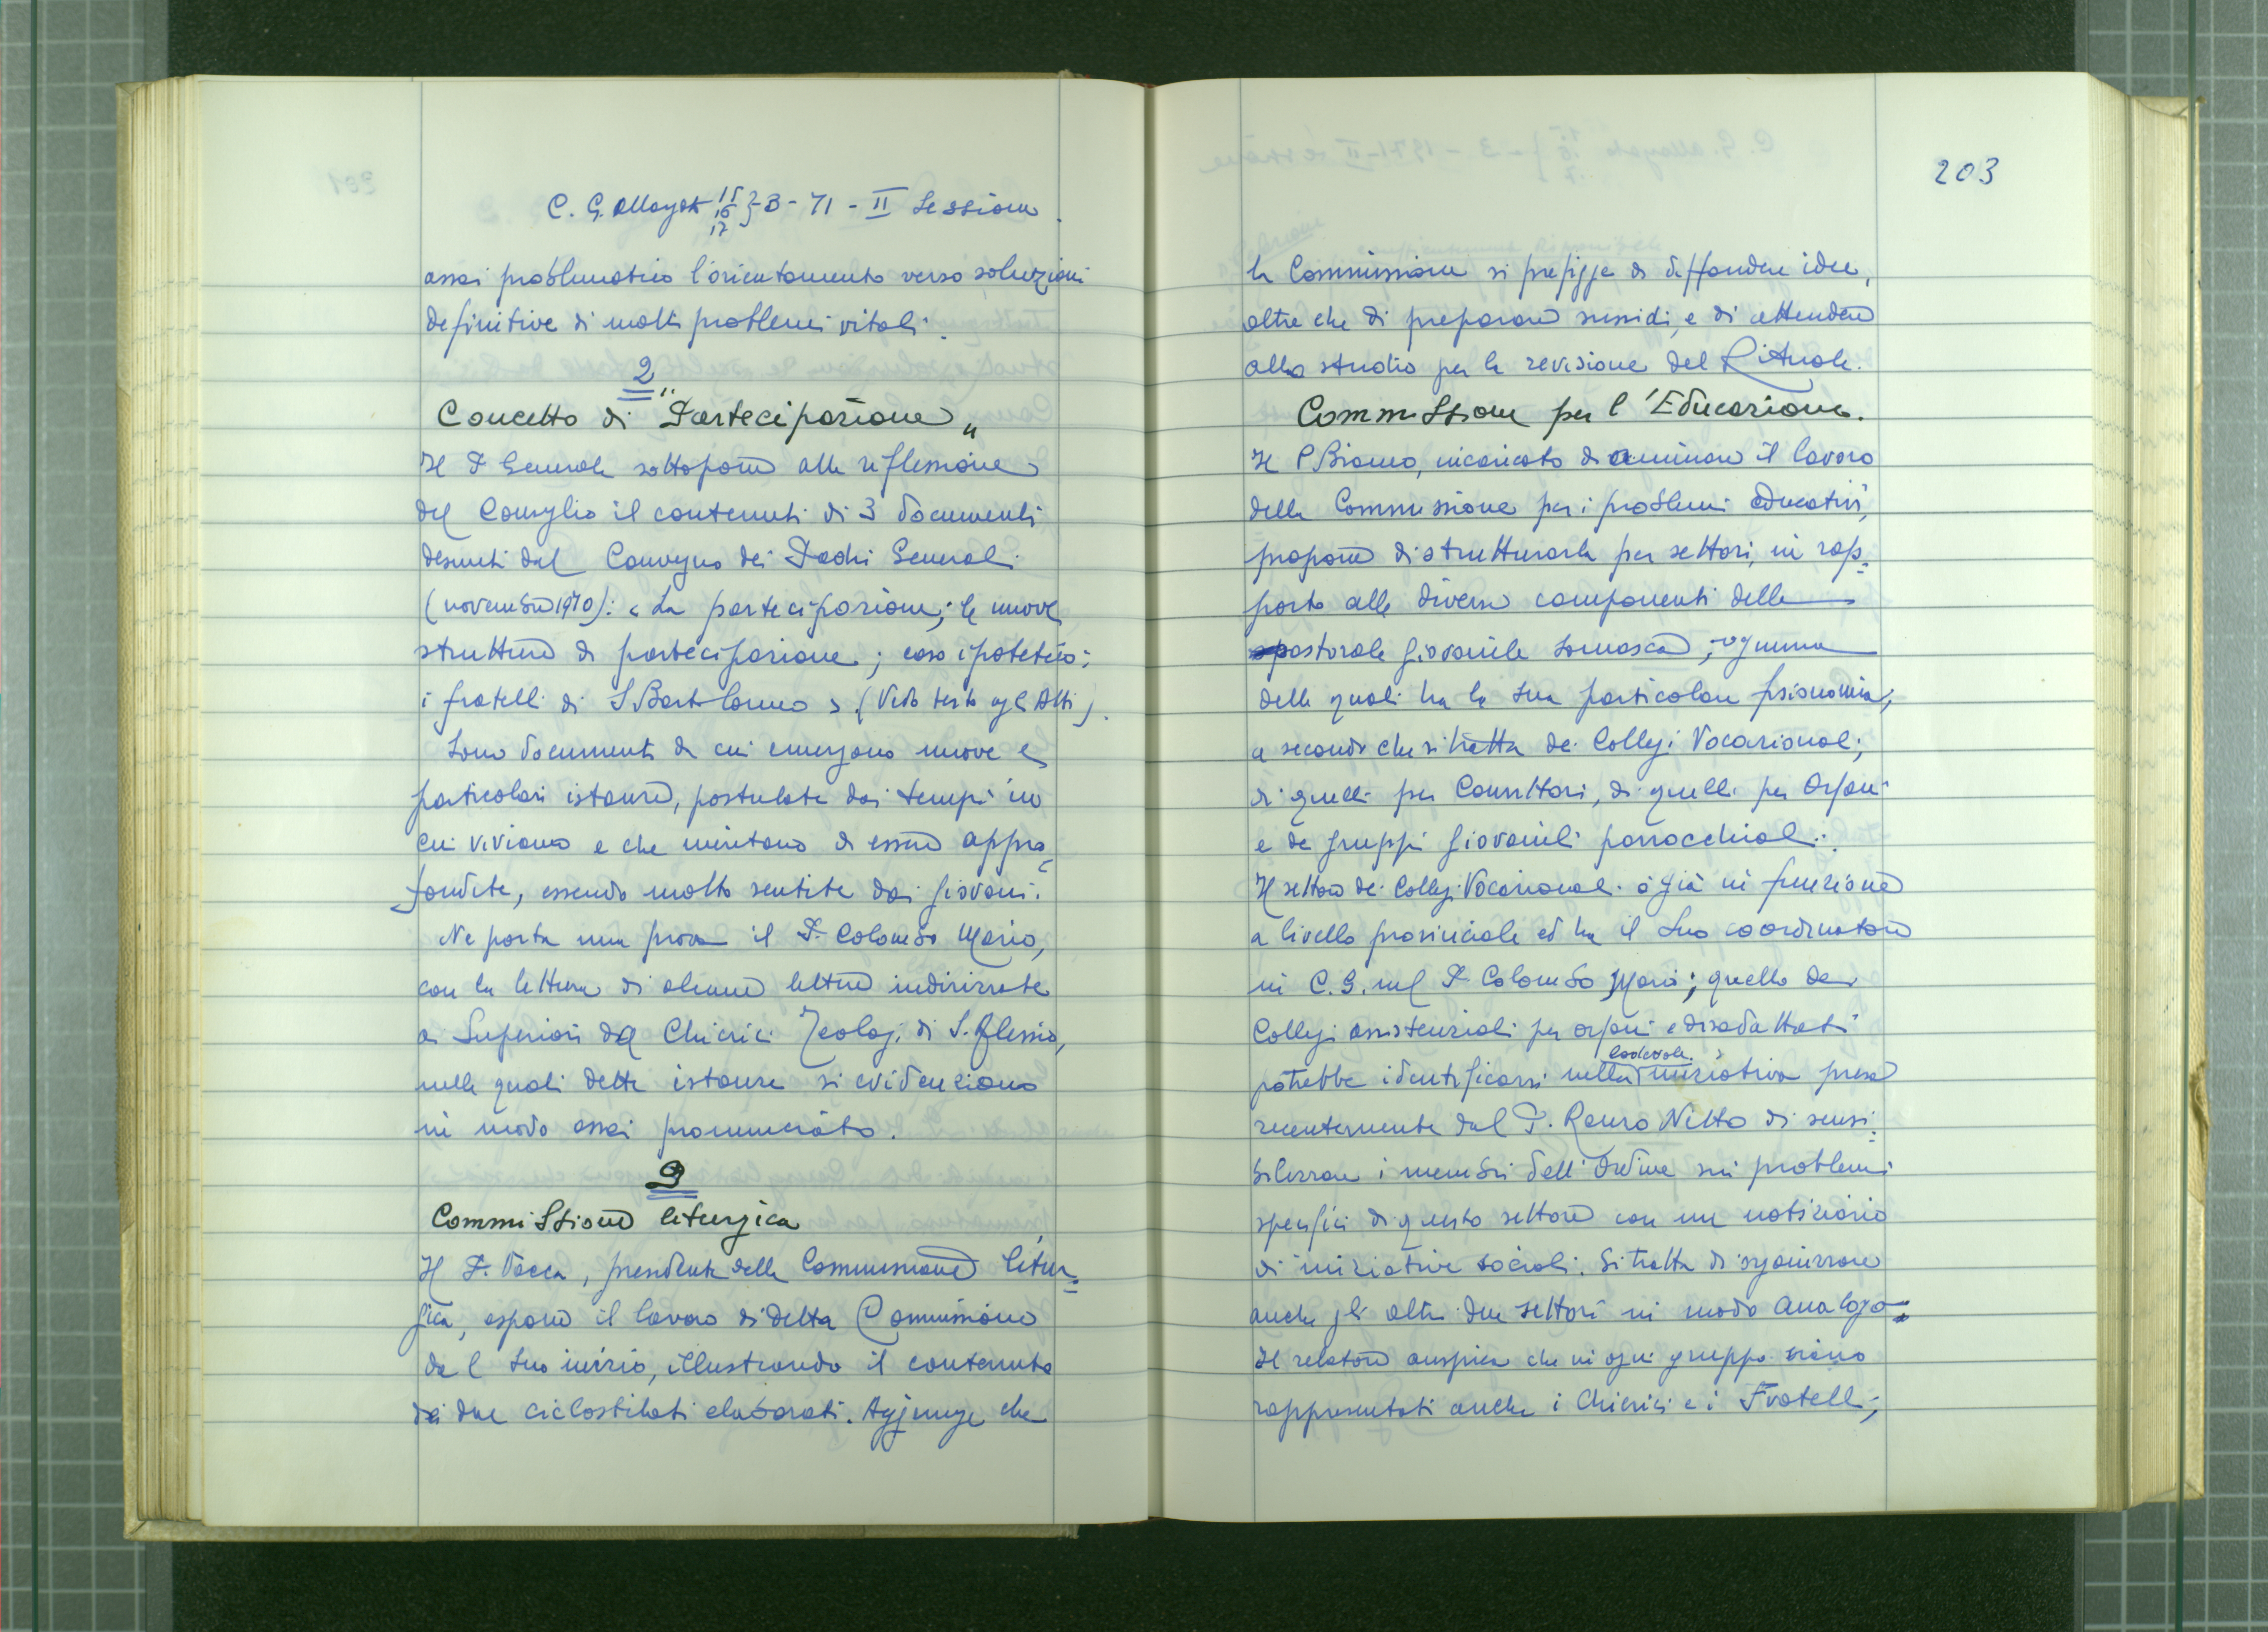 C. G. allargato 15 16 17 } -3 - 71 - II Sessione
assai problematico l'orientamento verso soluzioni
definitive di molti problemi vitali.
2
Concetto di "Partecipazione"
Il P. Generale sottopone alla riflessione
del Consiglio il contenuti di 3 documenti
desunti dal Convegno dei Padri Generali
(novembre 1970): « La partecipazione; le nuove
strutture di partecipazione; caso ipotetico:
i fratelli di S. Bartolomeo » (Vedo testo agli Atti).
Sono documenti da cui emergono nuove e
particolari istanze, postulate dai tempi in
cui viviamo e che meritano di essere appro=
fondite, essendo molto sentite dai giovani.
Ne porta una prova il P. Colombo Mario,
con la lettura di alcune lettere indirizzate
ai Superiori dai Chierici Teologi di S. Alessio,
nelle quali dette istanze si evidenziano
in modo assai pronunciato.
3
Commissione liturgica
Il P. Vacca, presidente della Commissione litur=
gica, espone il lavoro di detta Commissione
dal suo inizio, illustrando il contenuto
dei due ciclostilati elaborati. Aggiunge che
203
la Commissione si prefigge di diffondere idee,
oltre che di preparare sussidi, e di attendere
allo studio per la revisione del Rituale.
Commissione per l'Educazione.
Il P. Brioano, incaricato di animare il lavoro
della Commissione per i problemi educativi,
propone di strutturarla per settori, in rap=
porto alle diverse componenti della
pastorale giovanile somasca; ognuna
delle quali ha la sua particolare fisionomia,
a secondo che si tratta dei Collegi Vocazionali,
di quelli per Convittori, di quelli per Orfani
e dei gruppi giovanili parrocchiali.
Il settore dei Collegi Vocazionali è già in funzione
a livello provinciale ed ha il suo coordinatore
in C. G. nel P. Colombo Mario; quello dei
Collegi assistenziali per orfani e disadattati
potrebbe identificarsi nella lodevole iniziativa presa
recentemente dal P. Renzo Netto di sensi=
bilizzare i membri dell'Ordine sui problemi
specifici di questo settore con un notiziario
di iniziative sociali. Si tratta di organizzare
anche gli altri due settori in modo analogo.
Il relatore auspica che in ogni gruppo siano
rappresentati anche i Chierici e i Fratelli;